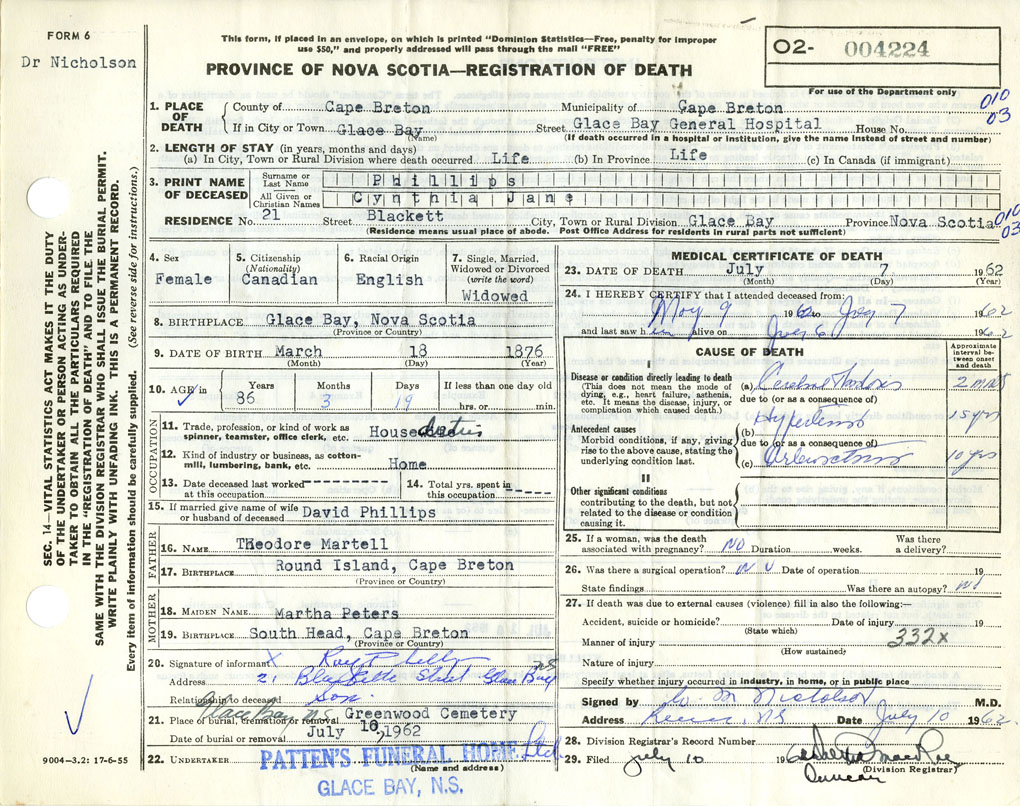 FORM 6
Dr Nicholson
This form, if placed in an envelope, on which is printed "Dominion Statistics—Free, penalty for improper
use $50," and properly addressed will pass through the mail "FREE"
PROVINCE OF NOVA SCOTIA—REGISTRATION OF DEATH
O2- 004224
For use of the Department only
SEC. 14—VITAL STATISTICS ACT MAKES IT THE DUTY
OF THE UNDERTAKER OR PERSON ACTING AS UNDER-
TAKER TO OBTAIN ALL THE PARTICULARS REQUIRED
IN THE "REGISTRATION OF DEATH" AND TO FILE THE
SAME WITH THE DIVISION REGISTRAR WHO SHALL ISSUE THE BURIAL PERMIT.
WRITE PLAINLY WITH UNFADING INK. THIS IS A PERMANENT RECORD.
Every item of information should be carefully supplied. (See reverse side for instructions.)
1. PLACE OF DEATH County of Cape Breton Municipality of Cape Breton 010
If in City or Town Glace Bay Street Glace Bay General Hospital House No. 03
(Name) (If death occurred in a hospital or institution, give the name instead of street and number)
2. LENGTH OF STAY (in years, months and days)
(a) In City, Town or Rural Division where death occurred Life (b) In Province Life (c) In Canada (if immigrant)
3. PRINT NAME OF DECEASED Surname or Last Name Phillips
All Given or Christian Names Cynthia Jane
RESIDENCE No. 21 Street Blackett City, Town or Rural Division Glace Bay Province Nova Scotia 010 03
(Residence means usual place of abode. Post Office Address for residents in rural parts not sufficient)
4. Sex Female
5. Citizenship (Nationality) Canadian
6. Racial Origin English
7. Single, Married, Widowed or Divorced (write the word) Widowed
8. BIRTHPLACE Glace Bay, Nova Scotia
(Province or Country)
9. DATE OF BIRTH March 18 1876
(Month) (Day) (Year)
10. AGE in Years Months Days If less than one day old
86 3 19 hrs. or min.
OCCUPATION
11. Trade, profession, or kind of work as
spinner, teamster, office clerk, etc. House duties
12. Kind of industry or business, as cotton-
mill, lumbering, bank, etc. Home
13. Date deceased last worked at this occupation
14. Total yrs. spent in this occupation
15. If married give name of wife
or husband of deceased David Phillips
FATHER
16. NAME Theodore Martell
17. BIRTHPLACE Round Island, Cape Breton
(Province or Country)
MOTHER
18. MAIDEN NAME Martha Peters
19. BIRTHPLACE South Head, Cape Breton
(Province or Country)
20. Signature of informant X Ray Phillips
Address 21 Blackette Street Glace Bay NS
Relationship to deceased Son
Glace Bay N.S.
21. Place of burial, cremation or removal Greenwood Cemetery
Date of burial or removal July 10, 1962
22. UNDERTAKER PATTEN'S FUNERAL HOME Ltd
(Name and address)
GLACE BAY, N.S.
9004—3.2: 17-6-55
MEDICAL CERTIFICATE OF DEATH
23. DATE OF DEATH July 7 1962
(Month) (Day) (Year)
24. I HEREBY CERTIFY that I attended deceased from:
May 9 1962 to July 7 1962
and last saw h alive on July 6 1962
CAUSE OF DEATH
Approximate interval between onset and death
I
Disease or condition directly leading to death
(This does not mean the mode of
dying, e.g., heart failure, asthenia,
etc. It means the disease, injury, or
complication which caused death.)
(a) Cerebral Thrombosis
due to (or as a consequence of)
Antecedent causes
Morbid conditions, if any, giving
rise to the above cause, stating the
underlying condition last.
(b) Hypertension 15 yrs
due to (or as a consequence of)
(c) 10 yrs
II
Other significant conditions
contributing to the death, but not
related to the disease or condition
causing it.
25. If a woman, was the death Was there
associated with pregnancy? NO Duration weeks. a delivery?
26. Was there a surgical operation? NO Date of operation 19
State findings Was there an autopsy? No
27. If death was due to external causes (violence) fill in also the following:—
Accident, suicide or homicide? Date of injury 19
(State which)
Manner of injury 332X
(How sustained)
Nature of injury
Specify whether injury occurred in industry, in home, or in public place
Signed by M Nicholson M.D.
Address NS Date July 10 1962
28. Division Registrar's Record Number
29. Filed July 10 196
Duncan
(Division Registrar)